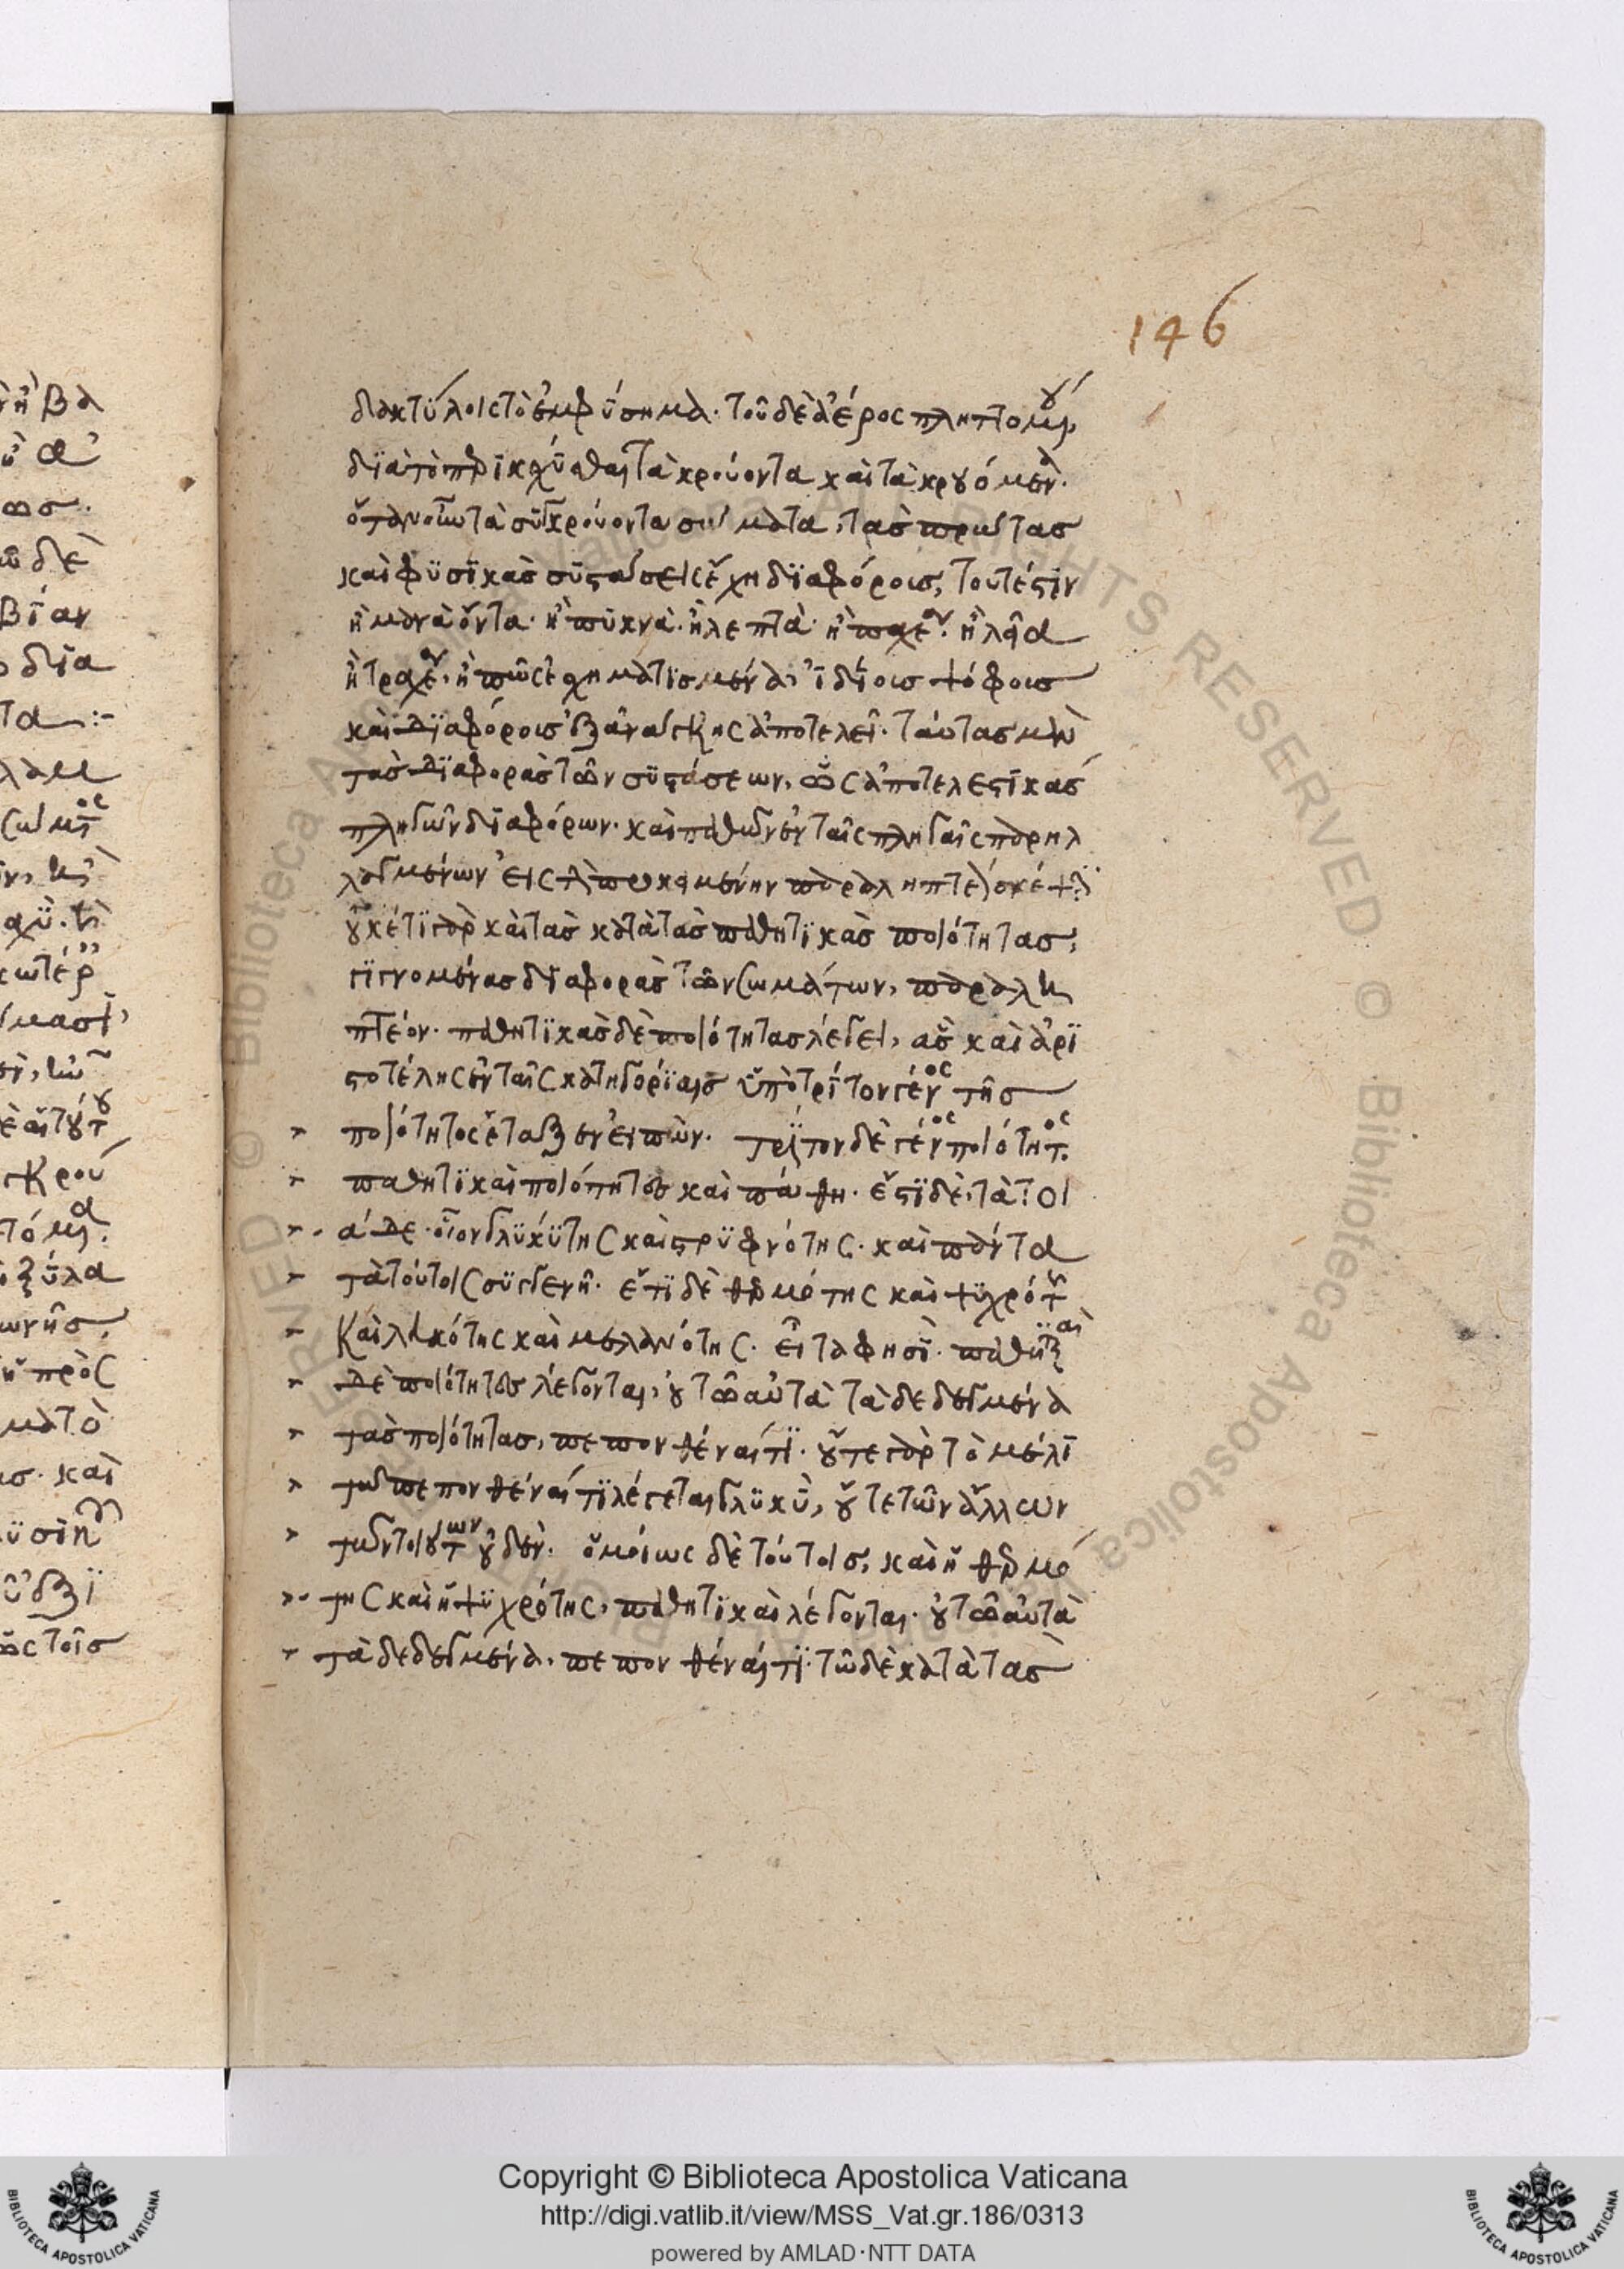 146
ὴ βα
δακτύλοις τὸ ἐμφύσημα· τοῦ δὲ ἀέρος πληττομέν
διὰ τὸ περικεχύσθαι τὰ κρούοντα καὶ τὰ κρουόμενα·
ὅταν οὖν τὰ συγκρούοντα σώματα, τὰς πρώτας
καὶ φυσικὰς συστάσεις ἔχη διαφόροις, τουτέστιν
ἢ μανὰ ὄντα· ἢ πυκνὰ· ἢ λεπτὰ· ἢ παχέα· ἢ λεῖα
ἢ τραχέα, ἢ πῶς ἐσχηματισμένα, ἰδίοις ψόφοις
καὶ διαφόροις ἐξ ἀνάγκης ἀποτελεῖ· ταύτας μὲν
τὰς διαφορὰς τῶν συστάσεων, ὡς ἀποτελεστικὰς
πληγῶν διαφόρων· καὶ παθῶν ἐν ταῖς πληγαῖς παρηλ
λαγμένων εἰς τὴν προκειμένην παραληπτέον σκέψιν
οὐκέτι γὰρ καὶ τὰς κατὰ τὰς παθητικὰς ποιότητας,
γιγνομένας διαφορὰς τῶν σωμάτων, παραλη
πτέον· παθητικὰς δὲ ποιότητας λέγει, ἃς καὶ ἀρι
στοτέλης ἐν ταῖς κατηγορίαις ὑπὸ τρίτον γένος τῆς
ποιότητος ἔταξεν εἰπών· τρίτον δὲ γένος ποιότητος
παθητικαὶ ποιότητες καὶ πάθη· ἔστι δὲ, τὰ τοι
άδε· οἷον γλυκύτης καὶ στρυφνότης· καὶ πάντα
τὰ τούτοις συγγενῆ· ἔτι δὲ θερμότης καὶ ψυχρότης
καὶ λευκότης καὶ μελανότης· εἶτα φησὶ· παθητικαὶ
δὲ ποιότητες λέγονται, οὐ τῶ αὐτὰ τὰ δεδεγμένα
τὰς ποιότητας, πεπονθέναι τὶ· οὔτε γὰρ τὸ μέλι
τῶ πεπονθέναι τὶ λέγεται γλυκὺ, οὔτε τῶν ἄλλων
τῶν τοιούτων οὐδὲν· ὁμοίως δὲ τούτοις, καὶ ἡ θερμό
της καὶ ἡ ψυχρότης, παθητικαὶ λέγονται· οὐ τῶ αὐτὰ
τὰ δεδεγμένα, πεπονθέναι τὶ· τῶ δὲ κατὰ τὰς
Copyright © Biblioteca Apostolica Vaticana
http://digi.vatlib.it/view/MSS_Vat.gr.186/0313
powered by AMLAD·NTT DATA